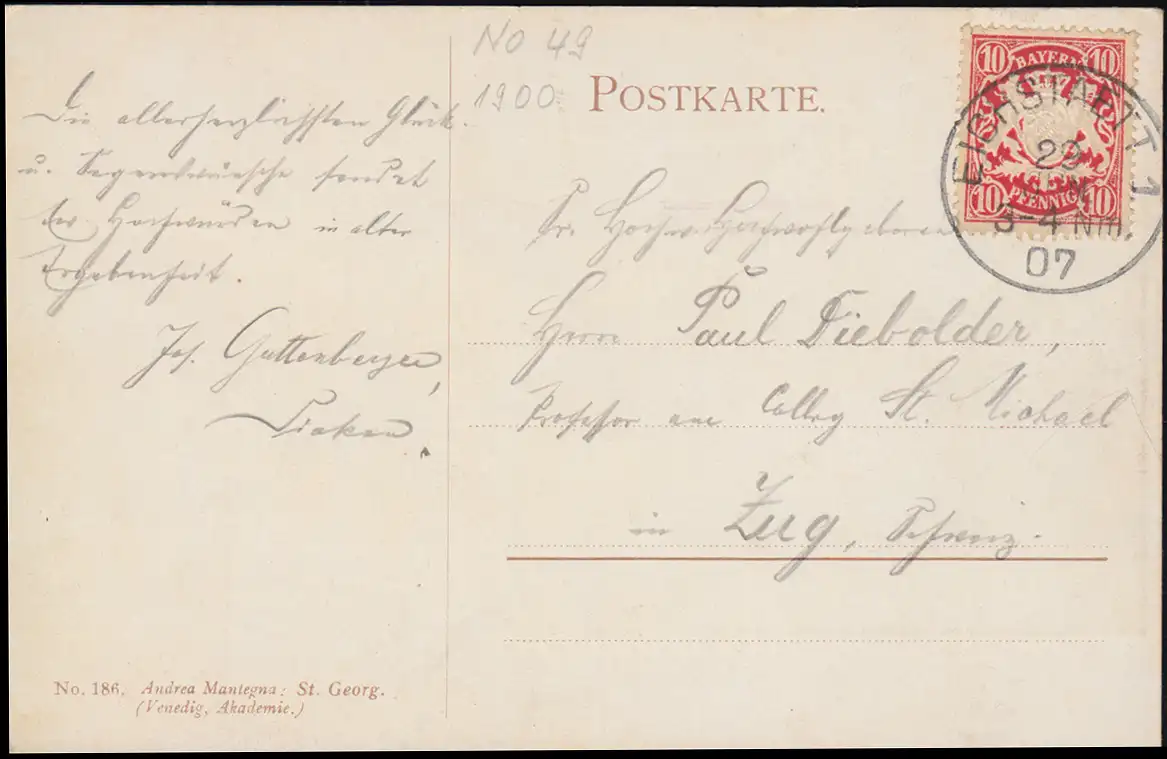 No 49
1900.
POSTKARTE.
10 BAYERN 10
10 PFENNIG 10
EICHSTAETT 1
29
3-4 Nm.
07
Die allerherzlichsten Glück-
u. Segenswünsche sendet
Ew. Hochwürden in alter
Ergebenheit.
Jos. Guttenberger,
Diakon.
Sr. Hochw. Hochwohlgeboren
Herrn Paul Diebolder,
Professor am Colleg St. Michael
in Zug, Schweiz.
No. 186. Andrea Mantegna: St. Georg.
(Venedig, Akademie.)